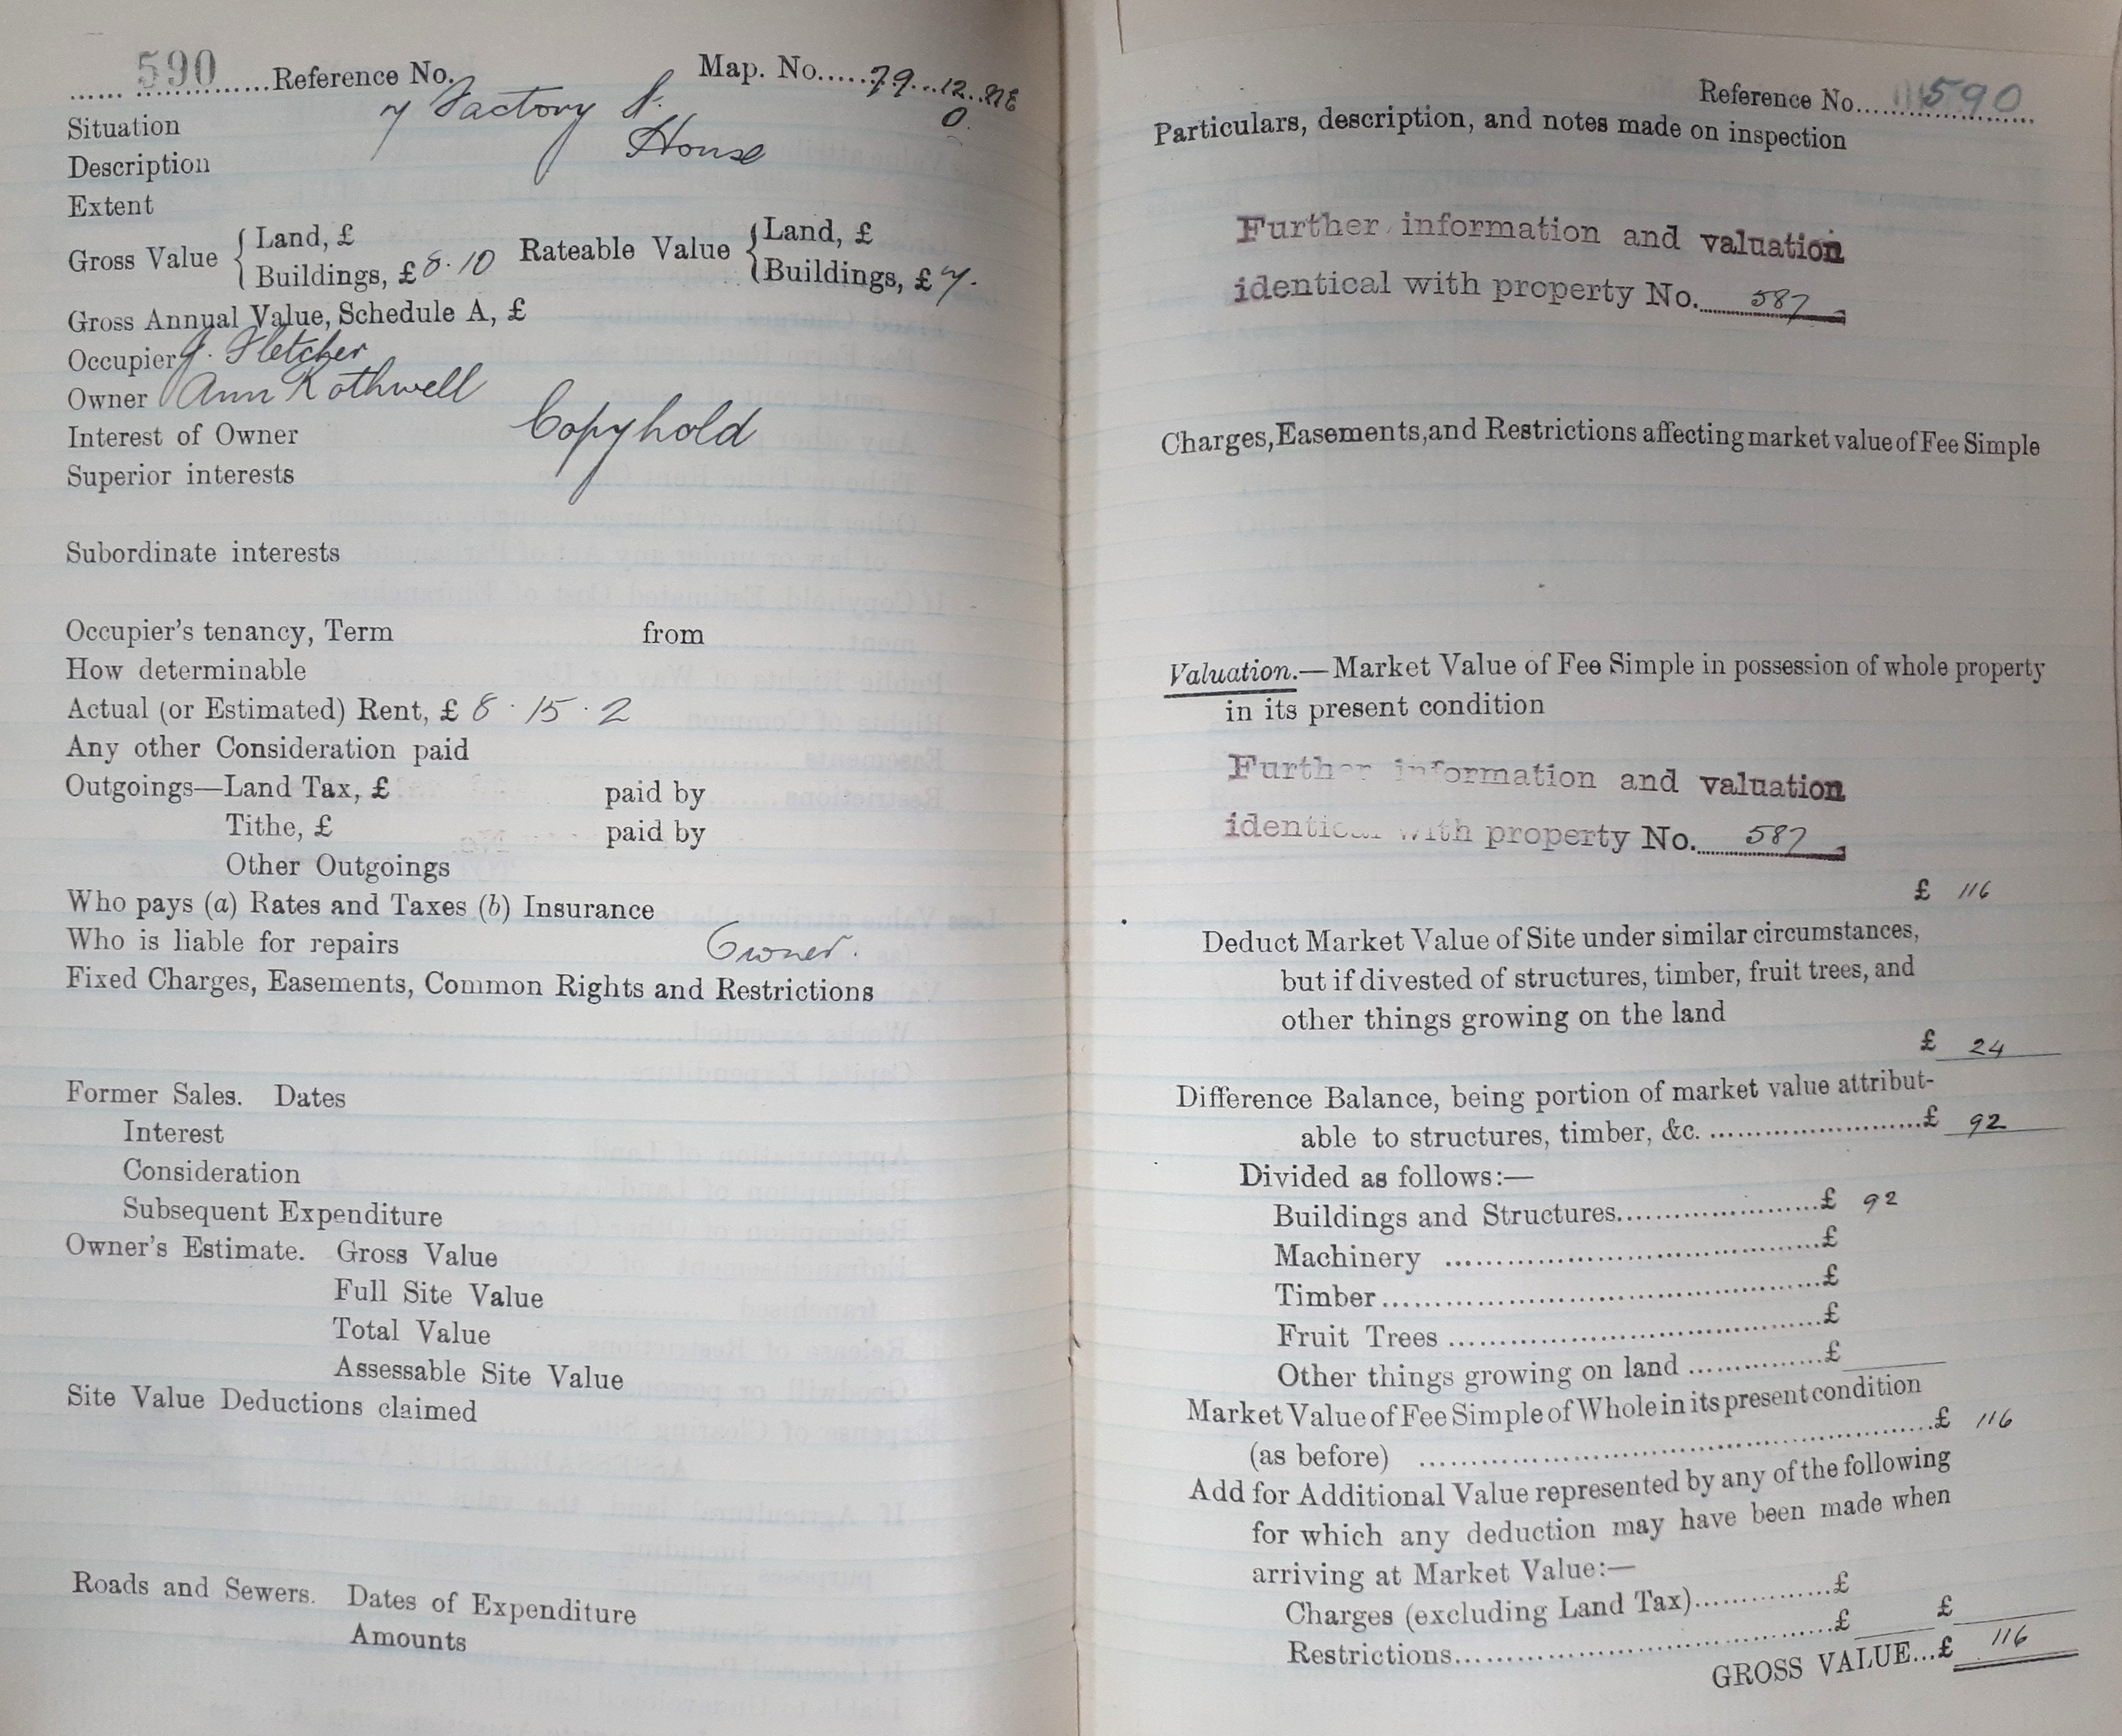 590 Reference No. Map. No. 79. 12. NE
Situation 7 Factory St. 0
Description House
Extent
Gross Value { Land, £ Rateable Value { Land, £
Buildings, £ 8.10 Buildings, £ 7.
Gross Annual Value, Schedule A, £
Occupier J. Fletcher
Owner Ann Rothwell
Interest of Owner Copyhold
Superior interests
Subordinate interests
Occupier's tenancy, Term from
How determinable
Actual (or Estimated) Rent, £ 8.15.2
Any other Consideration paid
Outgoings—Land Tax, £ paid by
Tithe, £ paid by
Other Outgoings
Who pays (a) Rates and Taxes (b) Insurance
Who is liable for repairs Owner.
Fixed Charges, Easements, Common Rights and Restrictions
Former Sales. Dates
Interest
Consideration
Subsequent Expenditure
Owner's Estimate. Gross Value
Full Site Value
Total Value
Assessable Site Value
Site Value Deductions claimed
Roads and Sewers. Dates of Expenditure
Amounts
Reference No. 590
Particulars, description, and notes made on inspection
Further information and valuation
identical with property No. 587
Charges, Easements, and Restrictions affecting market value of Fee Simple
Valuation.—Market Value of Fee Simple in possession of whole property
in its present condition
Further information and valuation
identical with property No. 587
£ 116
Deduct Market Value of Site under similar circumstances,
but if divested of structures, timber, fruit trees, and
other things growing on the land
£ 24
Difference Balance, being portion of market value attribut-
able to structures, timber, &c. £ 92
Divided as follows:—
Buildings and Structures £ 92
Machinery £
Timber £
Fruit Trees £
Other things growing on land £
Market Value of Fee Simple of Whole in its present condition
(as before) £ 116
Add for Additional Value represented by any of the following
for which any deduction may have been made when
arriving at Market Value:—
Charges (excluding Land Tax) £
Restrictions £ £
GROSS VALUE...£ 116